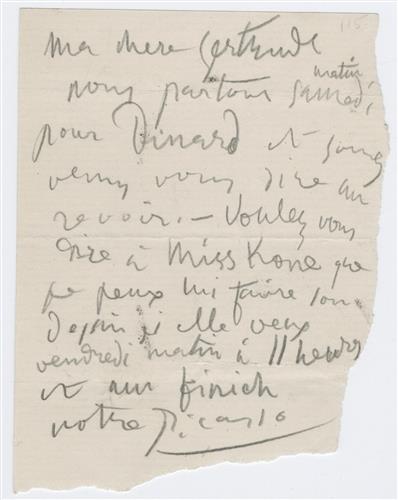 115
Ma chere Gertrude
nous partons samedi matin,
pour Dinard et somes
venus vous dire au
revoir. – Voulez vous
dire à Miss Kone que
je peux lui faire son
Dessin si elle veux
vendredi matin à 11 heures
et
notre Picasso